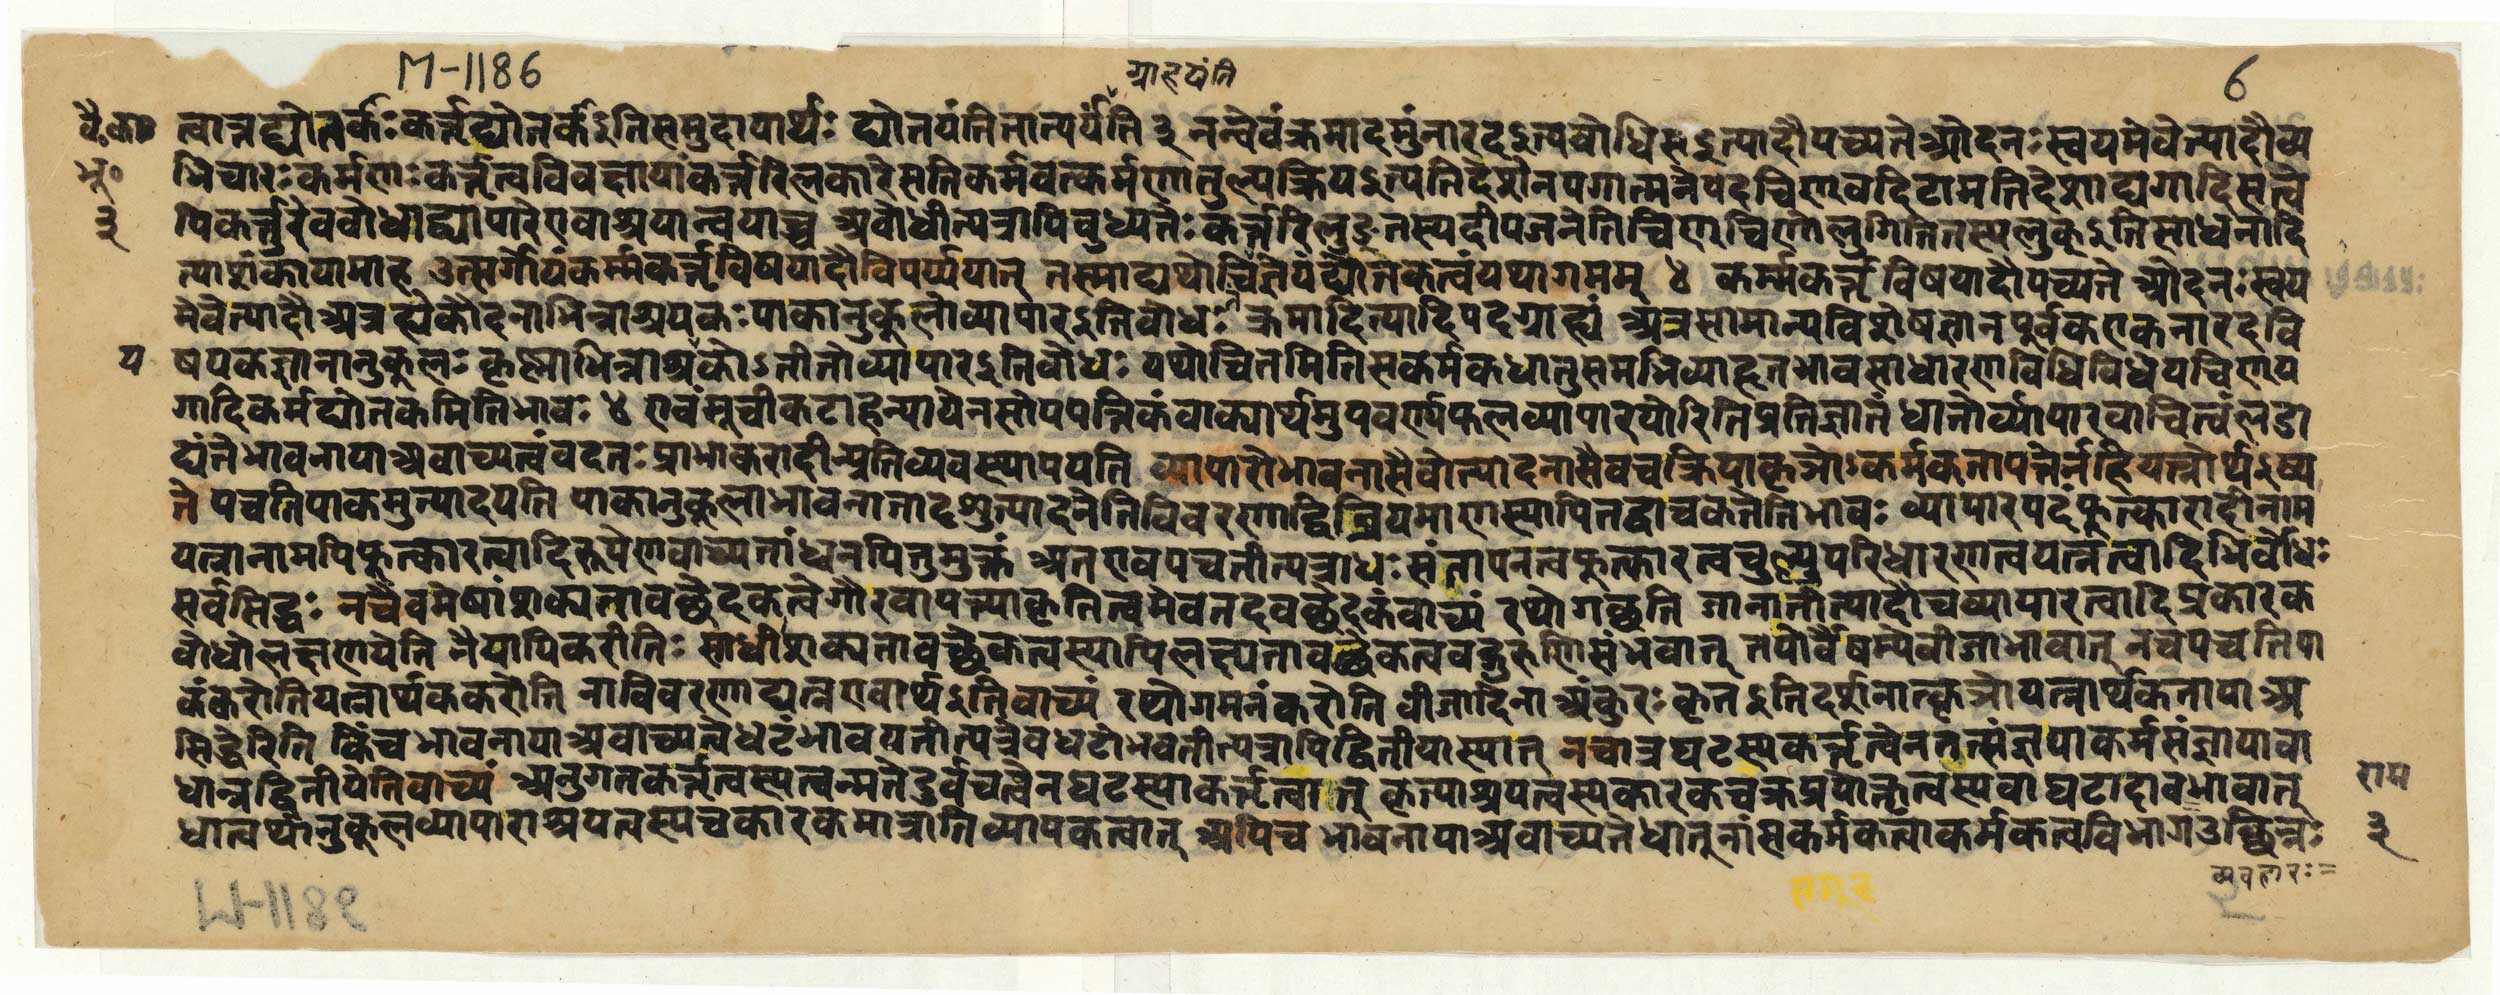 M-1186
ग्राहयंति
6
वै॰ का॰
भू॰
३
त्वात्तद्द्योतकः कर्तृद्योतक इति समुदायार्थः द्योतयंति तात्पर्यं ति ३ नन्वेवं क्रमादमुं नारद इत्यबोधि स इत्यादौ पच्यते ओदनः स्वयमेवेत्यादौ व्य
भिचारः कर्मणः कर्तृत्वविवक्षायां कर्त्तरि लकारे सति कर्मवत्कर्मणा तुल्यक्रिय इत्यतिदेशेन यगात्मनेपदचिण्वदिटामतिदेशाद्यगादिसत्वे
पि कर्त्तुरेव बोधाद्व्यापार एवाश्रयान्वयाच्च अबोधीत्यत्रापि बुध्यतेः कर्त्तरि लुङ् तस्य दीपजनेति चिण् चिणो लुगिति तस्य लुक् इति साधनादि
त्याशंकायामाह उत्सर्गोयं कर्मकर्तृविषयादौ विपर्ययात् तस्माद्यथोचितेयं द्योतकत्वं यथागमम् ४ कर्मकर्तृविषयादौ पच्यते ओदनः स्वय
मेवेत्यादौ अत्र ह्येकौदनाभिन्नाश्रयकः पाकानुकूलो व्यापार इति बोधः क्रमादित्यादिपदग्राह्यं अत्र सामान्यविशेषज्ञानपूर्वक एकनारदवि
य
षयकज्ञानानुकूलः कृष्णाभिन्नाश्रयकोऽतीतो व्यापार इति बोधः यथोचितमिति सकर्मकधातुसमभिव्याहृतभावसाधारणविधिविधेयचिण्य
गादिकर्मद्योतकमिति भावः ४ एवं सूचीकटाहन्यायेन सोपपत्तिकं वाक्यार्थमुपवर्ण्य फलव्यापारयोरिति प्रतिज्ञातं धातोर्व्यापारवाचित्वं लडा
द्यंते भावनाया अवाच्यत्वं वदतः प्राभाकरादीन्प्रति व्यवस्थापयति व्यापारो भावना सैवोत्पादना सैव च क्रिया कृञोऽकर्मकतापत्तेर्नहि यत्नोर्थ इष्य
ते पचति पाकमुत्पादयति पाकानुकूला भावना तादृश्युत्पादनेति विवरणाद्विव्रियमाणस्यापि तद्वाचकतेति भावः व्यापारपदं फूत्कारादीनाम
यत्नानामपि फूत्कारत्वादिरूपेण वाच्यतां ध्वनयितुमुक्तं अत एव पचतीत्यत्राधः संतापनत्वफूत्कारत्वचुल्ल्युपरिधारणत्वयत्नत्वादिभिर्बोधः
सर्वसिद्धः नचैवमेषां शक्यतावच्छेदकत्वे गौरवापत्त्या कृतित्वमेव तदवच्छेदकं वाच्यं रथो गच्छति जानातीत्यादौ च व्यापारत्वादिप्रकारक
बोधो लक्षणयेति नैयायिकरीतिः साध्वी शक्यतावच्छेकत्वस्यापि लक्ष्यतावच्छेकत्ववद्गुरुणि संभवात् तयोर्वैषम्ये बीजाभावात् नच पचति पा
कं करोति यत्नार्थककरोति नाविवरणाद्यत्न एवार्थ इति वाच्यं रथो गमनं करोति बीजादिना अंकुरः कृत इति दर्शनात्कृञो यत्नार्थकताया अ
सिद्धेरिति किंच भावनाया अवाच्यत्वे घटं भावयतीत्यत्रेव घटो भवतीत्यत्रापि द्वितीया स्यात् नचात्र घटस्य कर्तृत्वेन तत्संज्ञया कर्मसंज्ञाया वा
धान्न द्वितीयेति वाच्यं अनुगतकर्तृत्वस्य त्वन्मते दुर्वचत्वेन घटस्याकर्तृत्वात् कृत्याश्रयत्वस्य कारकचक्रप्रयोक्तृत्वस्य वा घटादावभावात्
धात्वर्थानुकूलव्यापाराश्रयत्वस्य च कारकमात्रातिव्यापकत्वात् अपिच भावनाया अवाच्यत्वे धातूनां सकर्मकत्वाकर्मकत्वविभाग उच्छिन्नः
राम
३
व्यवहारः=